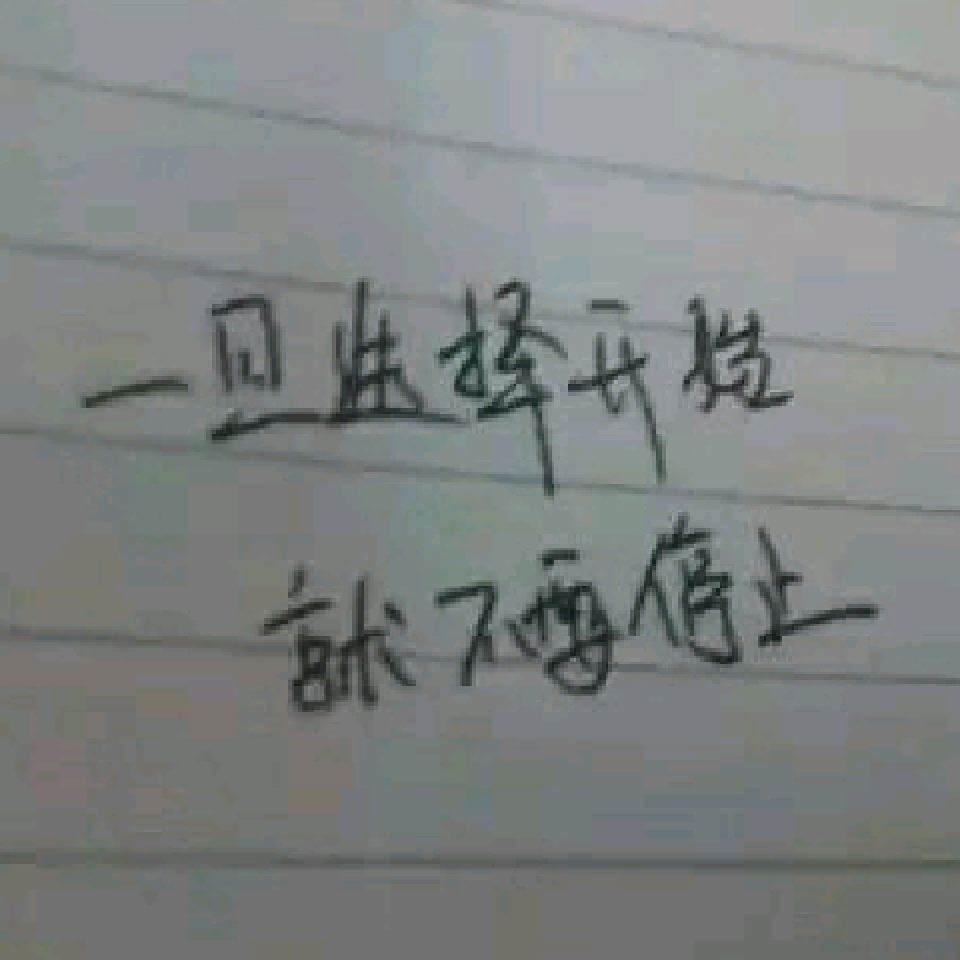 一旦选择开始
就不要停止